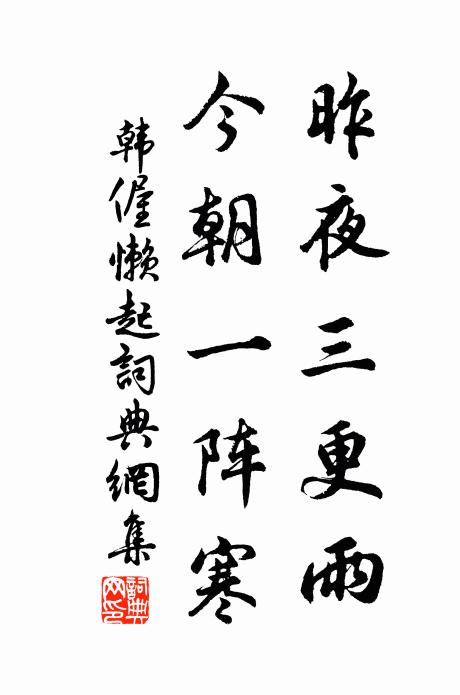 昨夜三更雨
今朝一阵寒
韩偓懒起詞典網集
詞典网印